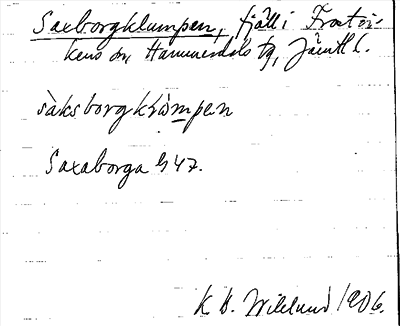 Saxborgklumpen, fjäll i Frostvi-
kens sn, Hammerdals tg, Jämtl.
saksborgklompen
Saxaborga § 47.
K. B. Wiklund 1906.